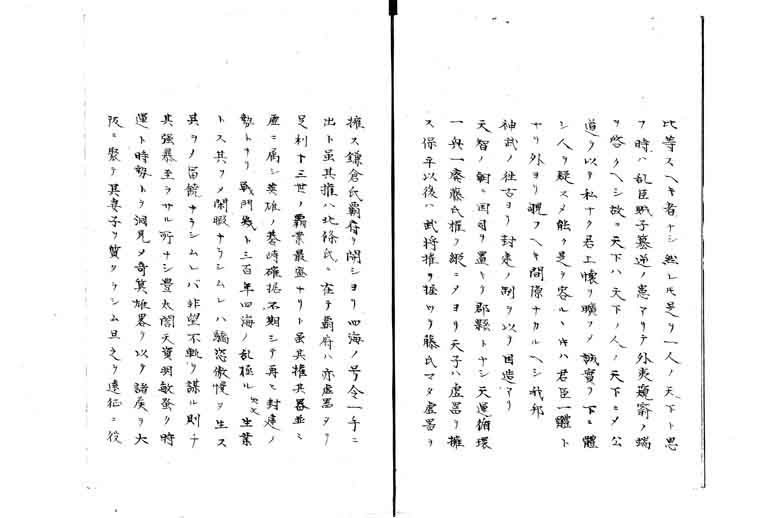 比等スヘキ者ナシ然レ𪜈是ヲ一人ノ天下ト思
フ時ハ乱臣賊子簒逆ノ患アリテ外夷窺窬ノ端
ヲ啓クヘシ故ニ天下ハ天下ノ人ノ天下ニメ公
道ヲ以テ私ナク君上懐ヲ曠フメ誠實ヲ下ニ體
シ人ヲ疑スメ能ク是ヲ容ルヽキハ君臣一體ト
ナリ外ヨリ覗フヘキ間隙ナカルヘシ我邦
神武ノ往古ヨリ封建ノ制ヲ以テ国造アリ
天智ノ朝ニ国司ヲ置キテ郡縣トナシ天運循環
一興一廢藤氏権ヲ縦ニメヨリ天子ハ虚器ヲ擁
ス保平以後ハ武将権ヲ握リ藤氏マタ虚器ヲ
擁ス鎌倉氏覇府ヲ開シヨリ四海ノ号令一手ニ
出ト虽其権ハ北條氏ニ在テ覇府ハ亦虚器タリ
足利十三世ノ覇業最盛ナリト虽其権其器並ニ
虚ニ属シ英雄ノ碁峙確拠不期シテ再ヒ封建ノ
勢トナリ戦鬥幾ト三百年四海ノ乱極ル 生葉
トス其ヲメ閑暇ナラシムレハ驕恣傲慢ヲ生ス
其ヲメ富饒ナラシムレバ非望不軌ヲ謀ル則チ
其強暴至ラサル所ナシ豊太閤天資明敏蚤ク時
運ト時勢トヲ洞見メ奇英雄畧ヲ以テ諸侯ヲ大
阪ニ聚テ其妻子ヲ質タラシム且之ヲ遠征ニ役